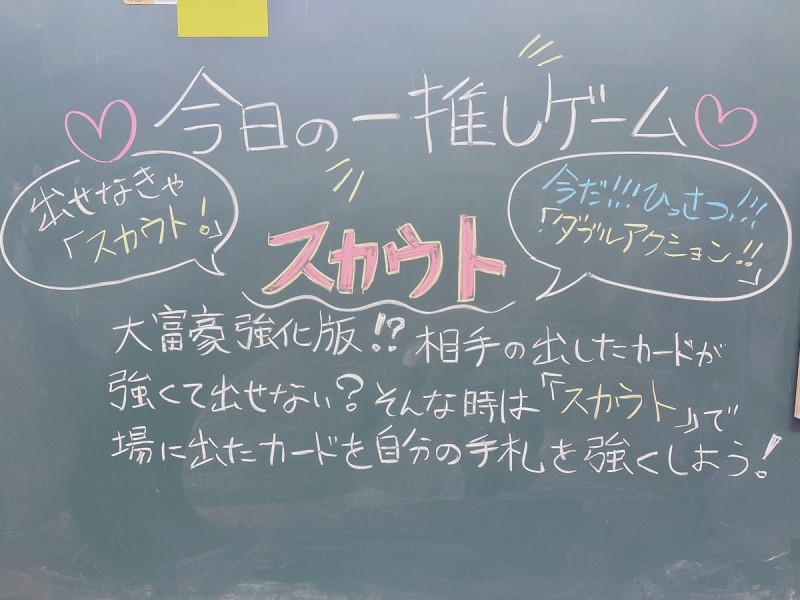 今日の一推しゲーム
出せなきゃ
「スカウト！」
今だ!!!ひっさつ!!!
「ダブルアクション!!」
スカウト
大富豪強化版!? 相手の出したカードが
強くて出せない？そんな時は「スカウト」で
場に出たカードを自分の手札を強くしよう！